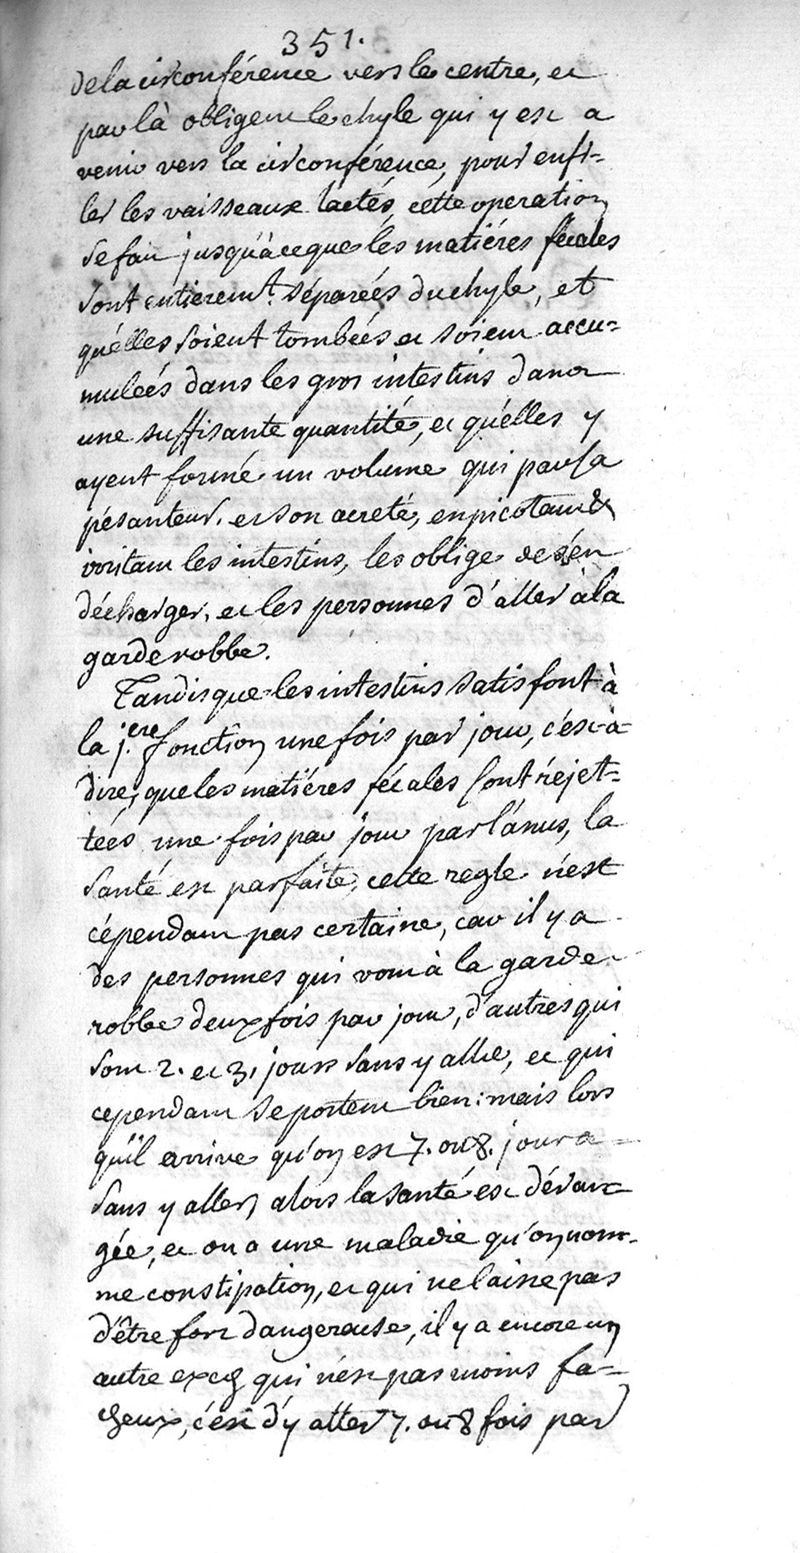 351.
de la circonférence vers le centre, et
par là obligent le chyle qui y est a
venir vers la circonférence, pour enfi=
ler les vaisseaux lactés, cette operation
se fait jusqu'àceque les matiéres fécales
sont entierem.t séparées du chyle, et
qu'elles soient tombées et soient accu=
mulées dans les gros intestins dans
une suffisante quantité, et qu'elles y
ayent formé un volume qui par sa
pésanteur, et son acreté, en picotant &
irritant les intestins, les oblige de s'en
décharger, et les personnes d'aller à la
garderobbe.
Tandisque les intestins satisfont à
la j.ere fonction une fois par jour, c'est-à-
dire, que les matiéres fécales sont réjet=
tées une fois par jour par l'ánus, la
santé est parfaite, cette regle n'est
cépendant pas certaine, car il y a
des personnes qui vont à la garde
robbe deux fois par jour, d'autres qui
sont 2. et 3. jours sans y aller, et qui
cependant se portent bien: mais lors
qu'il arrive qu'on est 7. ou 8. jours
sans y aller, alors la santé est déran
gée, et on a une maladie qu'on nom-
me constipation, et qui ne laisse pas
d'être fort dangereuse, il y a encore un
autre excés qui n'est pas moins fa=
cheux, c'est d'y aller 7. ou 8 fois par